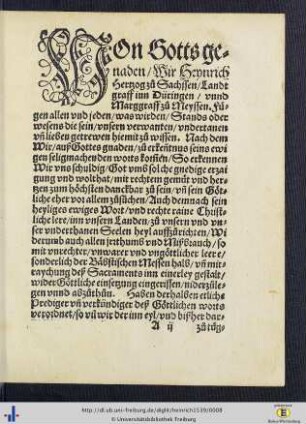 VOn Gotts ge-
naden/ Wir Heynrich
Hertzog zů Sachssen/ Landt
graff inn Düringen/ vnnd
Marggraff zů Meyssen. Fü-
gen allen vnd jeden/ was wirden/ Stands oder
wesens die sein/ vnsern verwanten/ vndertanen
vñ lieben getrewen hiemit zů wissen. Nach dem
Wir/ auß Gottes gnaden/ zů erkeñtnus seins ewi
gen seligmachenden worts kom̃en/ So erkennen
Wir vns schuldig/ Got vmb solche gnedige erzai
gung vnd wolthat/ mit rechtem gemüt vnd her-
tzen zum höchsten danckbar zů sein/ vñ sein Göt-
liche eher vor allem zůsůchen/ Auch dennach sein
heyliges ewiges Wort/ vnd rechte raine Christ-
liche lere/ inn vnsern Landen/ zů vnser vnd vn-
ser vnderthanen Seelen heyl auffzůrichten/ Wi
derumb auch allen jrthumb vnd Mißbrauch/ so
mit vnrechter/ vnwarer vnd vngöttlicher leere/
sonderlich der Bäbstischen Messen halb/ vñ mit
raychung deß Sacraments inn einerley gestalt/
wider Göttliche einsetzung eingerissen/ niderzůle-
gen vnnd abzůthůn. Haben derhalben etliche
Prediger vñ verkündiger deß Göttlichen worts
verordnet/ so vil wir der inn eyl/ vnd bißher dar-
A ij zů tüg-
http://dl.ub.uni-freiburg.de/diglit/heinrich1539/0008
© Universitätsbibliothek Freiburg